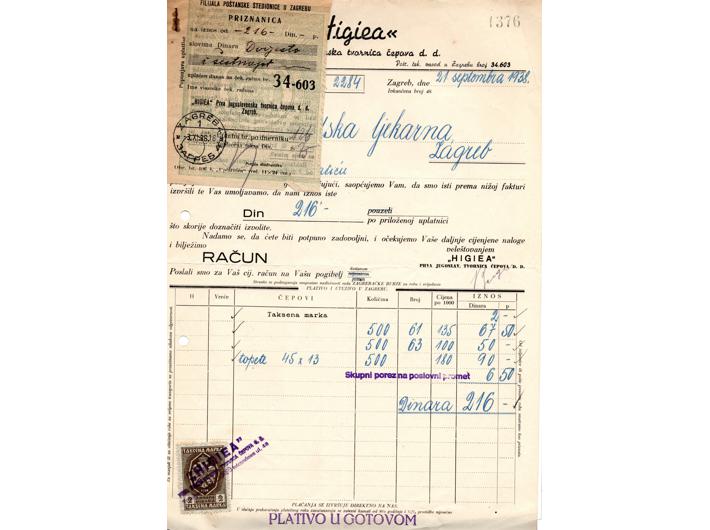 FILIJALA POŠTANSKE ŠTEDIONICE U ZAGREBU
PRIZNANICA
na iznos od -216- Din.- p.
slovima Dinara Dvijesto
i šestnajst
uplaćen danas na ček. račun br. 34-603
Ime vlasnika ček. računa
"HIGIEA" Prva jugoslavenska tvornica čepova d. d.
Zagreb.
ZAGREB
1
ЗАГРЕБ
1376
Higiea«
tvornica čepova d. d.
Pošt. ček. zavod u Zagrebu broj 34.603
2284
Zagreb, dne 21 septembra 1938.
ljekarna,
Zagreb
saopćujemo Vam, da smo isti prema nižoj fakturi
izvršili te Vas umoljavamo, da nam iznos iste
Din 216'-
pouzeli
po priloženoj uplatnici
što skorije doznačiti izvolite.
Nadamo se, da ćete biti potpuno zadovoljni, i očekujemo Vaše daljnje cijenjene naloge
i bilježimo
veleštovanjem
"HIGIEA"
PRVA JUGOSLAV. TVORNICA ČEPOVA D. D.
RAČUN
Poslali smo za Vaš cij. račun na Vašu pogibelj
PLATIVO I UTUŽIVO U ZAGREBU.
H Vreće ČEPOVI Količina Broj Cijena po 1000 IZNOS
Dinara p
Taksena marka 2 -
500 61 135 67 50
500 63 100 50 -
topete 45 x 13 500 180 90 -
Skupni porez na poslovni promet 6 50
Dinara 216 -
TAKSENA MARKA
"HIGIEA"
2 2
TAKSENA MARKA
PLAĆANJA SE IZVRŠUJE DIREKTNO NA NAS.
PLATIVO U GOTOVOM